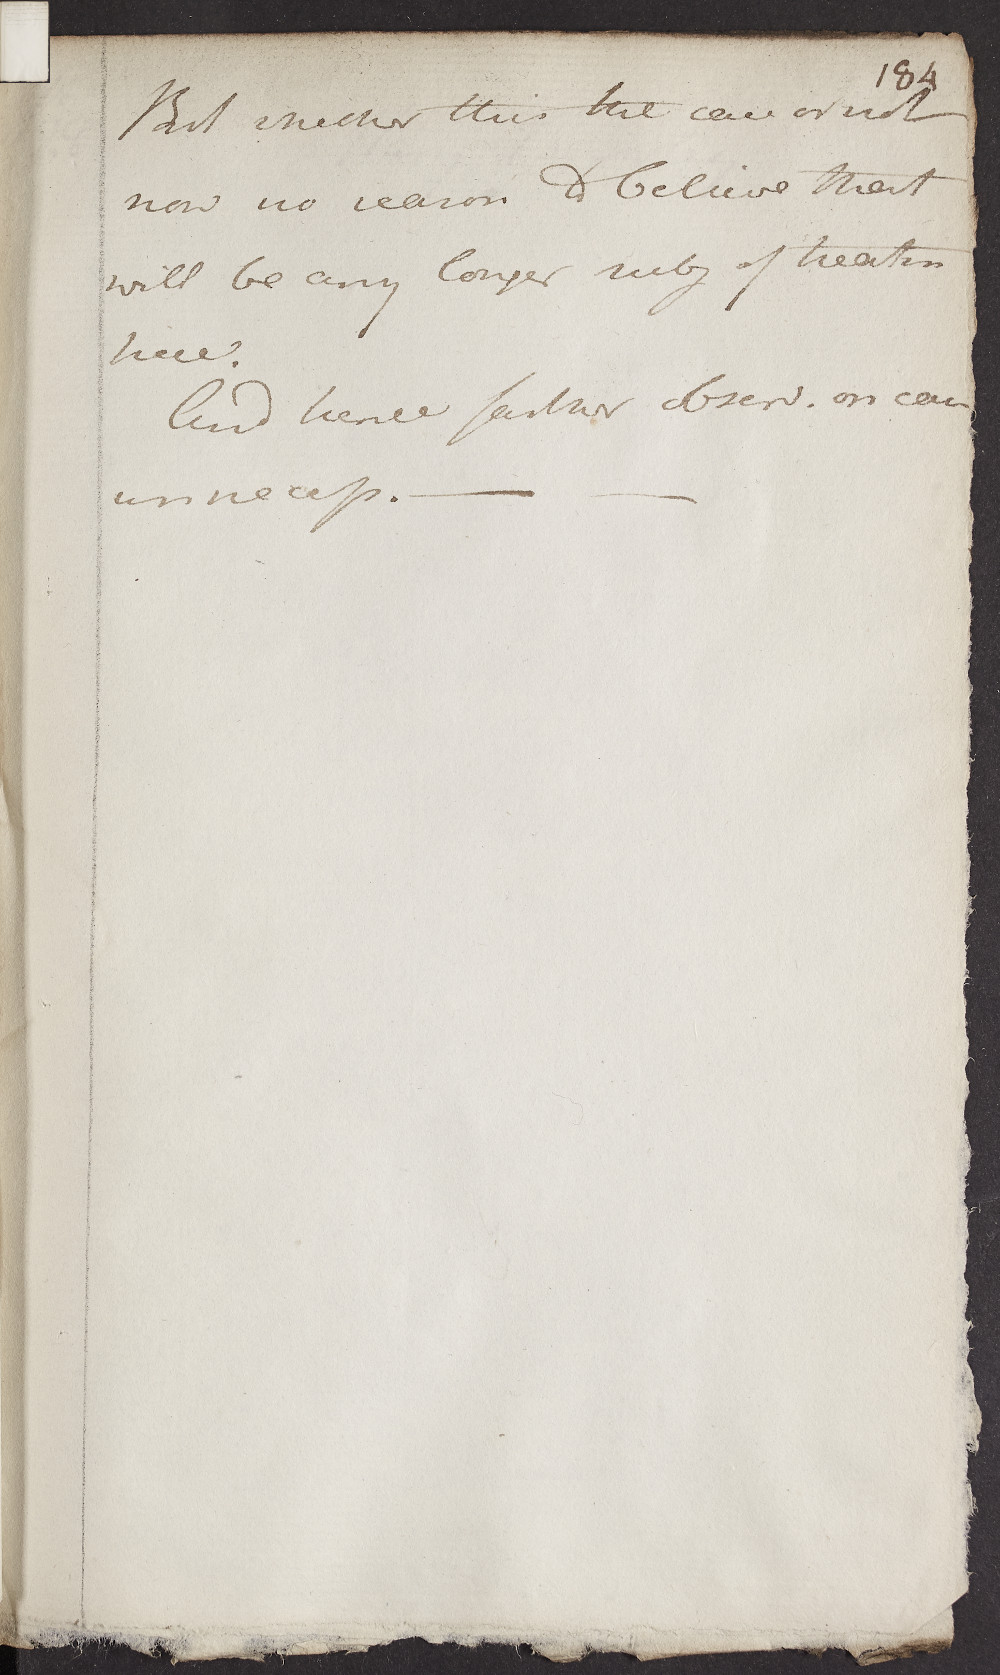 184
But whether this the case or not
now no reason to believe that
will be any longer subj of treatm
here.
And hence farther observ. on case
unnecess. — —